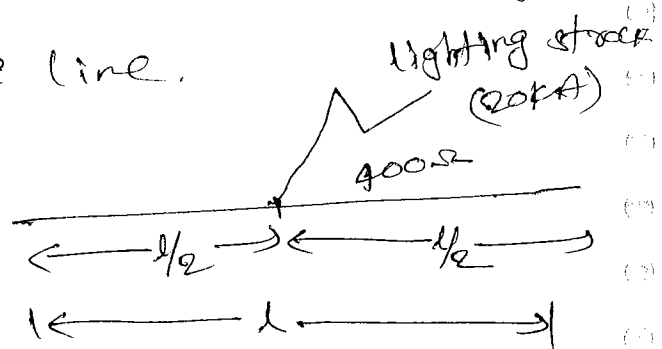 e line.
lighting strock
(20KA)
400Ω
l/2 l/2
l